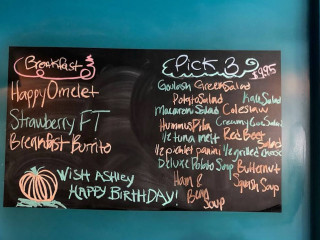 Breakfast
Happy Omelet
Strawberry FT
Breakfast Burrito
Wish Ashley
Happy Birthday!
Pick 3 $9.95
Goulash Green Salad
Potato Salad Kale Salad
Macaroni Salad Coleslaw
Hummus Pita Creamy Cuke Salad
1/2 tuna melt Red Beet Salad
1/2 piglet panini 1/2 grilled cheese
Deluxe Potato Soup Butternut Squash Soup
Ham & Bean Soup